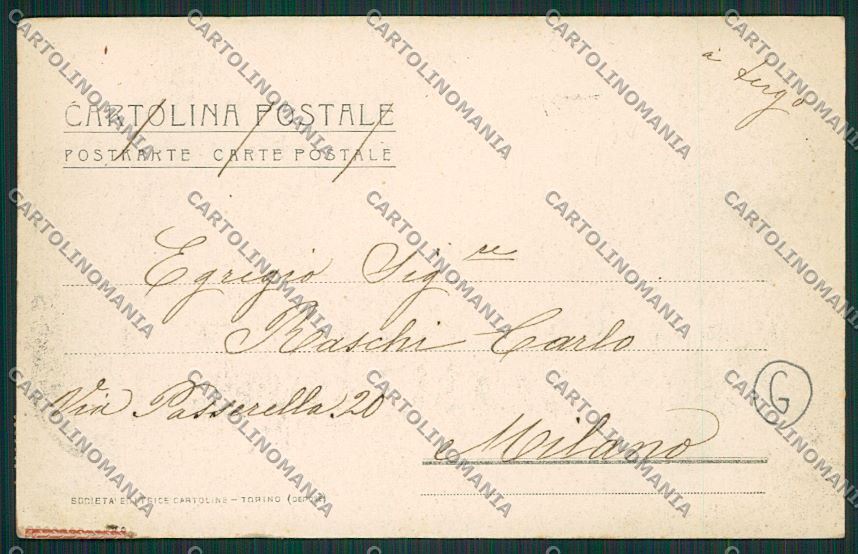 à tergo
CARTOLINA POSTALE
POSTKARTE CARTE POSTALE
Egregio Sig.re
Raschi Carlo
Via Passerella 20
Milano
G
SOCIETA' EDITRICE CARTOLINE – TORINO (DEPOSE)
CARTOLINOMANIA